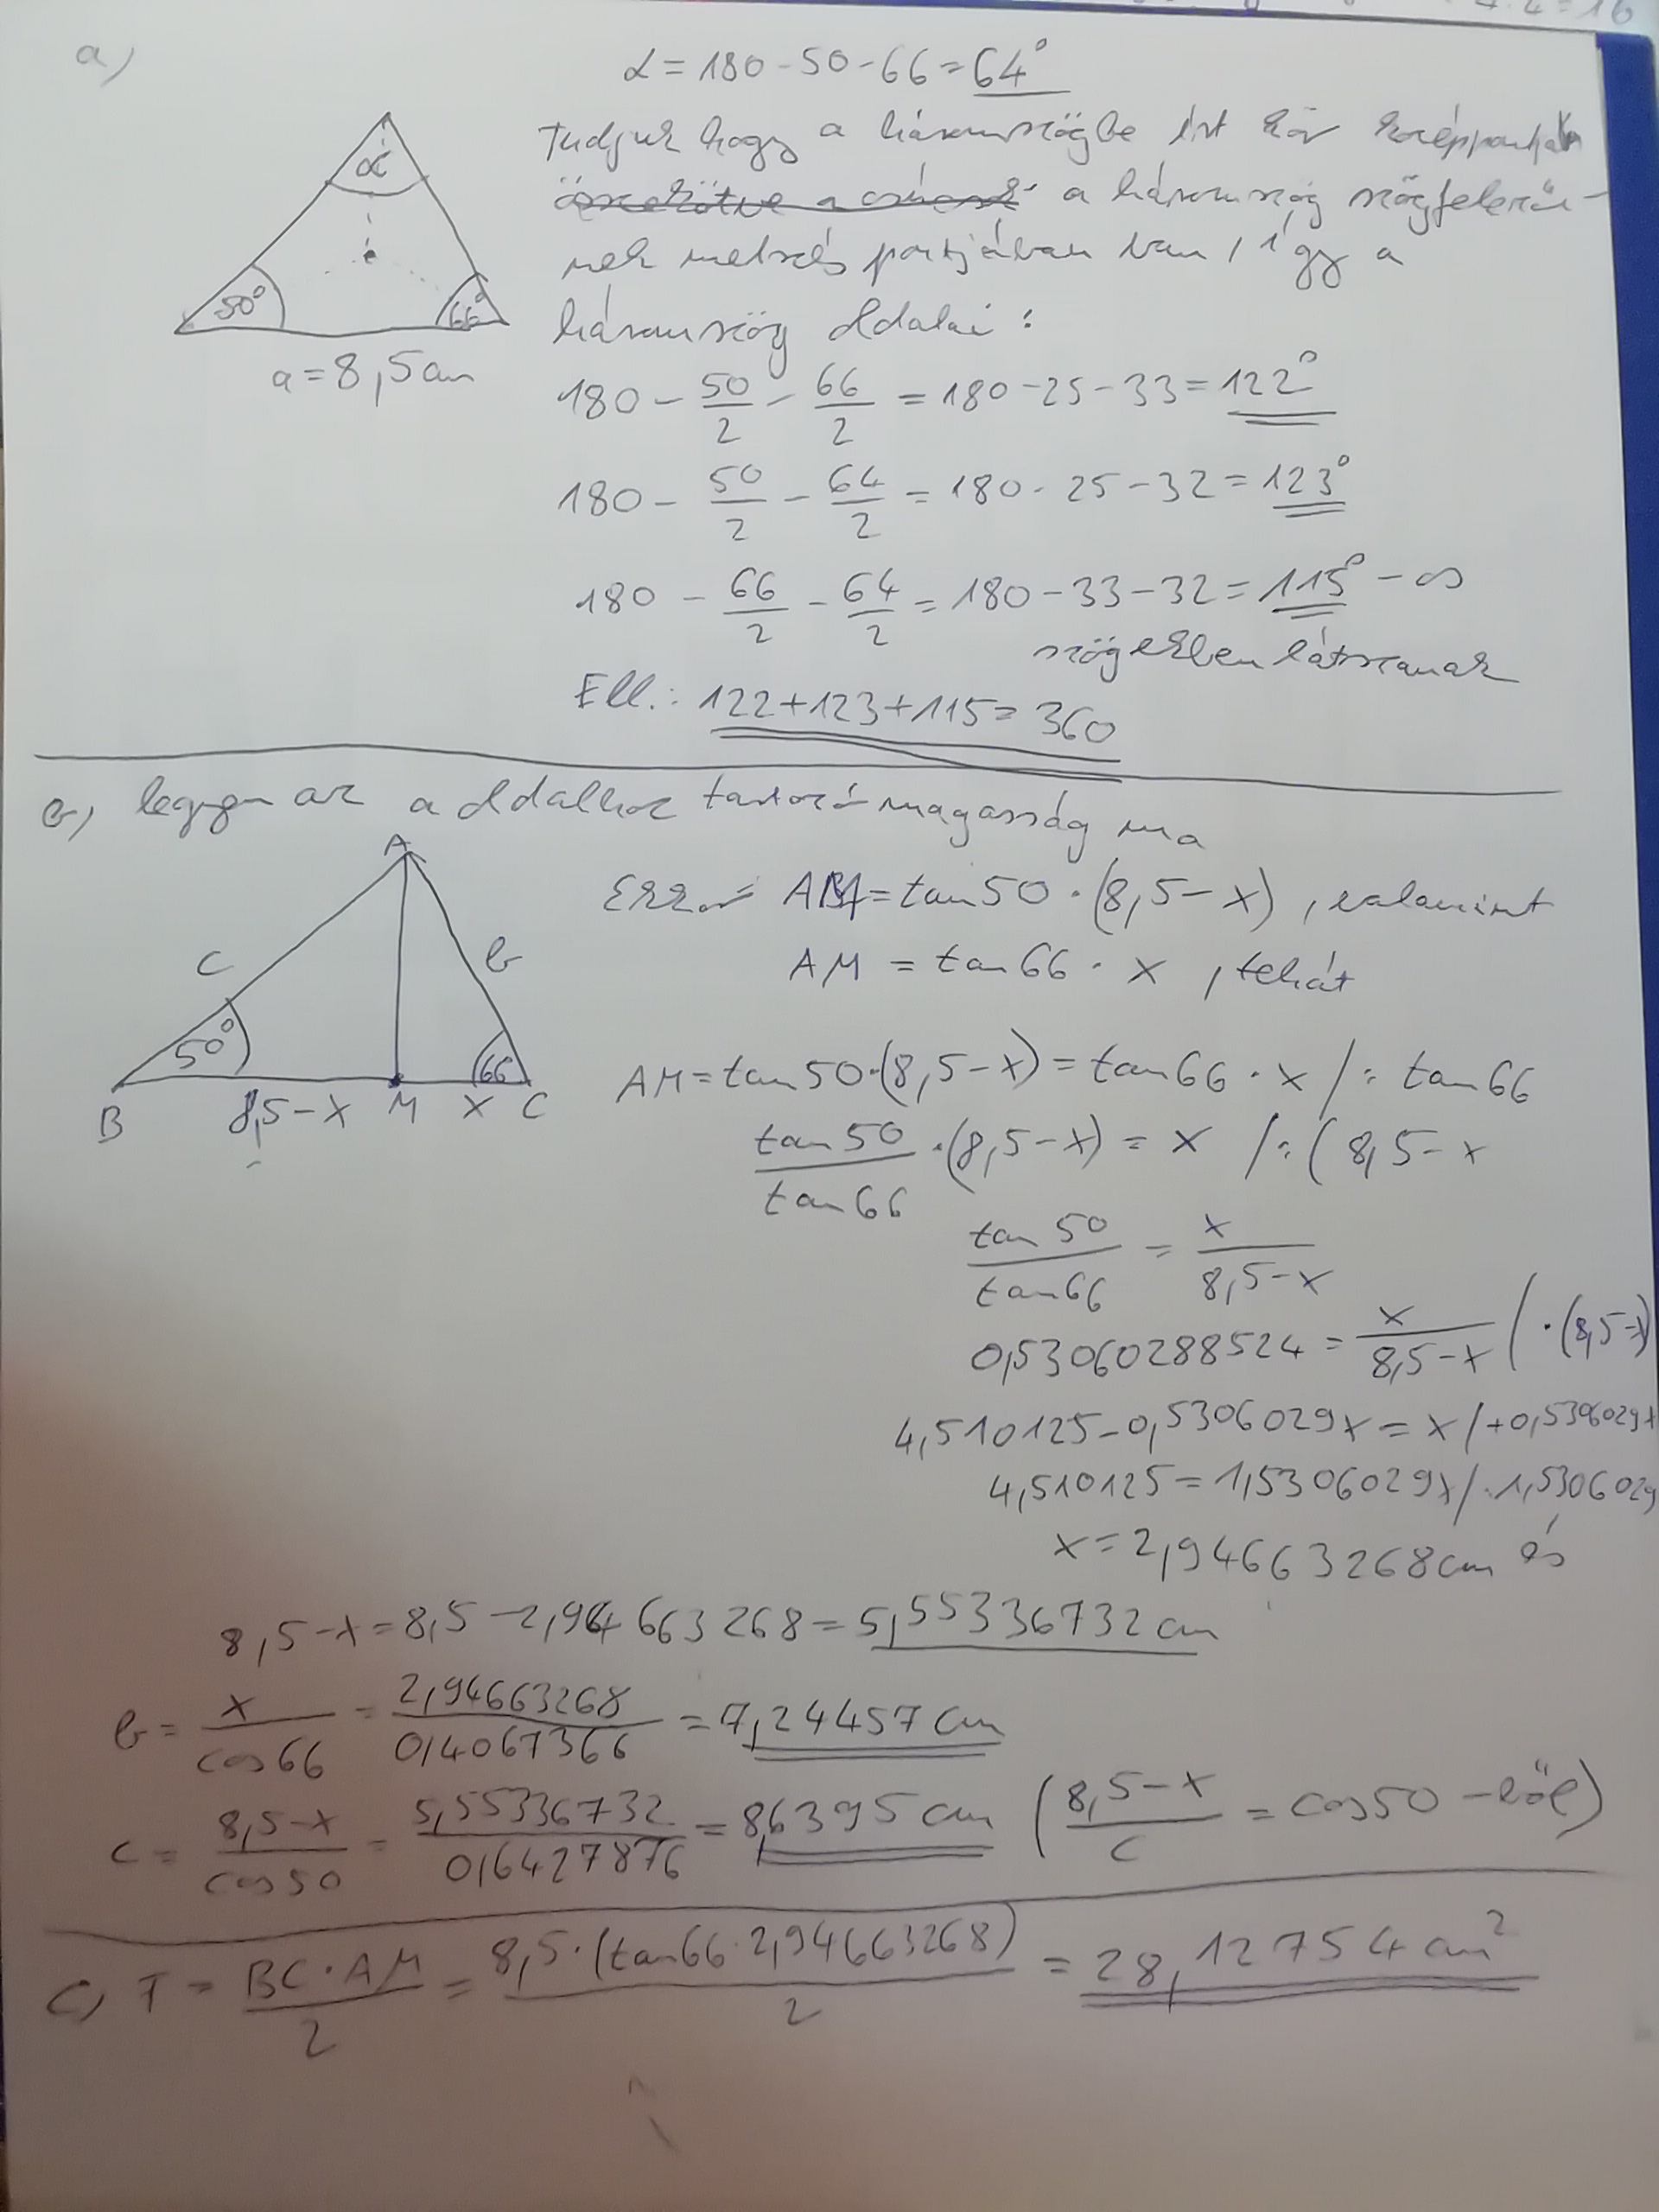 4.4=16
a)
α = 180 - 50 - 66 = 64°
Tudjuk hogy a háromszögbe írt kör középpontja
összekötve a a háromszög szögfelezői-
nek metszés pontjában van, így a
háromszög oldalai :
α
50°
66°
a = 8,5 cm
180 - 50/2 - 66/2 = 180 - 25 - 33 = 122°
180 - 50/2 - 64/2 = 180 - 25 - 32 = 123°
180 - 66/2 - 64/2 = 180 - 33 - 32 = 115° - os
szögekben látszanak
Ell.: 122+123+115 = 360
b) legyen az a oldalhoz tartozó magasság ma
A
c
b
50°
66
B 8,5-x M x C
Ekkor AM = tan 50 · (8,5 - x) , valamint
AM = tan 66 · x , tehát
AM = tan 50 · (8,5 - x) = tan 66 · x /: tan 66
tan 50 / tan 66 · (8,5 - x) = x /: (8,5 - x
tan 50 / tan 66 = x / 8,5 - x
0,53060288524 = x / 8,5 - x / · (8,5 - x)
4,510125 - 0,5306029x = x /+0,5306029x
4,510125 = 1,5306029x /: 1,5306029
x = 2,94663268 cm és
8,5 - x = 8,5 - 2,94663268 = 5,55336732 cm
b = x / cos 66 = 2,94663268 / 0,4067366 = 7,24457 cm
c = 8,5 - x / cos 50 = 5,55336732 / 0,6427876 = 8,6395 cm (8,5 - x / c = cos 50 - ből)
c) T = BC · AM / 2 = 8,5 · (tan 66 · 2,94663268) / 2 = 28,12754 cm²